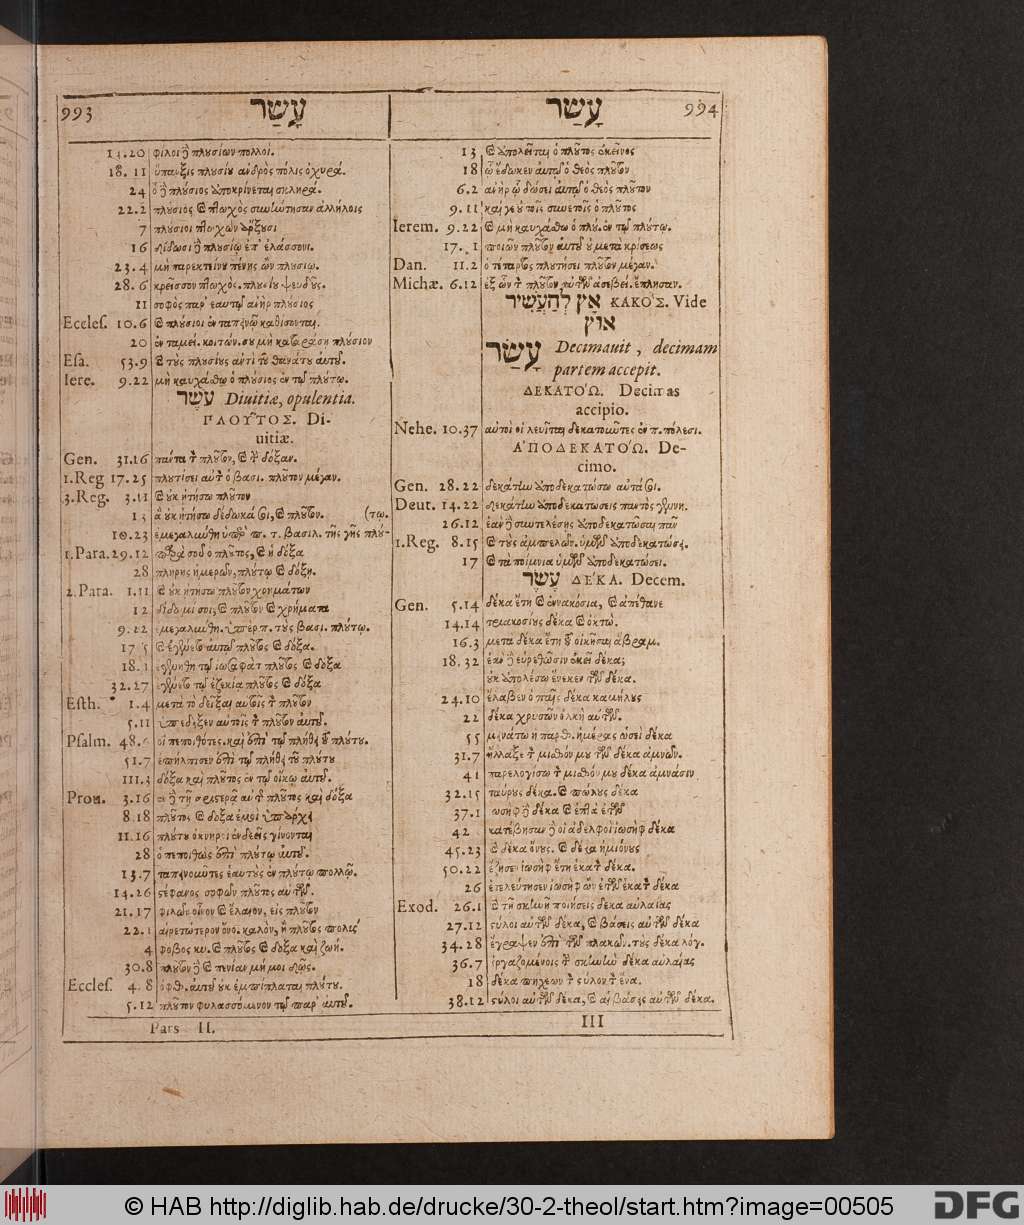 993 עָשַׁר
14.20 φίλοι ἢ πλυσίων πολλοί.
18.11 ὕπαρξις πλυσίυ ἀνδρὸς πόλις ὀχυρά.
24 ὁ ἢ πλύσιος ὑποκρίνεται σκληρά.
22.2 πλύσιος καὶ πτωχὸς συνώτησαν ἀλλήλοις
7 πλύσιοι πτωχῶν ἄρξυσι
16 δίδωσι ἢ πλυσίῳ ἐπ' ἐλάσσονι.
23.4 μὴ παρεκτείνυ πένης ὢν πλυσίῳ.
28.6 κρείσσων πτωχὸς. πλυσίυ ψευδῦς.
11 σοφὸς παρ' ἑαυτῷ ἀνὴρ πλύσιος
Eccles. 10.6 καὶ πλύσιοι ἐν ταπεινῷ καθίσονται.
20 ἐν ταμεί. κοιτών. συ μὴ καταράσῃ πλύσιον
Esa. 53.9 καὶ τὺς πλυσίυς ἀντὶ τῦ θανάτυ αὐτῦ.
Iere. 9.22 μὴ καυχάσθω ὁ πλύσιος ἐν τῷ πλύτῳ.
עֹשֶׁר Diuitiæ, opulentia.
ΠΛΟΥΤΟΣ. Di-
uitiæ.
Gen. 31.16 πάντα τὸν πλῦτον, καὶ τὴν δόξαν.
1.Reg 17.25 πλυτίσει αὐτὸν ὁ βασι. πλῦτον μέγαν.
3.Reg. 3.11 καὶ ὐκ ᾐτήσω πλῦτον
13 ἃ ὐκ ᾐτήσω δέδωκά σοι, καὶ πλῦτον. (τω.
10.23 ἐμεγαλύνθη ὑπὲρ π. τ. βασιλ. τῆς γῆς πλύ-
1.Para. 29.12 παρὰ σοῦ ὁ πλῦτος, καὶ ἡ δόξα
28 πλήρης ἡμερῶν, πλύτῳ καὶ δόξῃ.
2.Para. 1.11 καὶ ὐκ ᾐτήσω πλῦτον χρημάτων
12 δίδωμί σοι, καὶ πλῦτον καὶ χρήματα
9.22 ἐμεγαλύνθη. ὑπὲρ π. τὺς βασι. πλύτῳ.
17.5 καὶ ἐγένετο αὐτῷ πλῦτος καὶ δόξα.
18.1 ἐγενήθη τῷ ἰωσαφὰτ πλῦτος καὶ δόξα
32.27 ἐγένετο τῷ ἐζεκίᾳ πλῦτος καὶ δόξα
Esth. 1.4 μετὰ τὸ δεῖξαι αὐτοῖς τὸν πλῦτον
5.11 ὑπέδειξεν αὐτοῖς τὸν πλῦτον αὐτῦ.
Psalm. 48.6 οἱ πεποιθότες. καὶ ἐπὶ τῷ πλήθει τῦ πλύτυ.
51.7 ἐπήλπισεν ἐπὶ τῷ πλήθει τῦ πλύτυ
111.3 δόξα καὶ πλῦτος ἐν τῷ οἴκῳ αὐτῦ.
Prou. 3.16 ἐν ἢ τῇ ἀριστερᾷ αὐτῆς πλῦτος καὶ δόξα
8.18 πλῦτος καὶ δόξα ἐμοὶ ὑπάρχει
11.16 πλύτυ ὀκνηροὶ ἐνδεεῖς γίνονται
28 ὁ πεποιθὼς ἐπὶ πλύτῳ αὐτῦ.
13.7 ταπεινοῦντες ἑαυτὺς ἐν πλύτῳ πολλῷ.
14.26 στέφανος σοφῶν πλῦτος αὐτῶν.
21.17 φιλῶν οἶνον καὶ ἔλαιον, εἰς πλῦτον
22.1 αἱρετώτερον ὄνο. καλὸν, ἢ πλῦτος πολὺς
4 φόβος κυ. καὶ πλῦτος καὶ δόξα καὶ ζωή.
30.8 πλῦτον ἢ καὶ πενίαν μή μοι δῷς.
Eccles. 4.8 ὀφθ. αὐτῦ ὐκ ἐμπίπλαται πλύτυ.
5.12 πλῦτον φυλασσόμενον τῷ παρ' αὐτῦ.
Pars II.
עָשַׁר 994
13 καὶ ὑπολεῖται ὁ πλῦτος ἐκεῖνος
18 ᾧ ἔδωκεν αὐτῷ ὁ θεὸς πλῦτον
6.2 ἀνὴρ ᾧ δώσει αὐτῷ ὁ θεὸς πλῦτον
9.11 καί γε ὐ τοῖς συνετοῖς ὁ πλῦτος
Ierem. 9.22 καὶ μὴ καυχάσθω ὁ πλύ. ἐν τῷ πλύτῳ.
17.11 ποιῶν πλῦτον αὐτῦ ὐ μετὰ κρίσεως
Dan. 11.2 ὁ τέταρτος πλυτήσει πλῦτον μέγαν.
Michæ. 6.12 ἐξ ὧν τὸν πλῦτον αὐτῶν ἀσεβεί. ἔπλησαν.
אָץ לְהַעֲשִׁיר ΚΑΚΟΣ. Vide
אוץ
עָשַׂר Decimauit, decimam
partem accepit.
ΔΕΚΑΤΟΏ. Decimas
accipio.
Nehe. 10.37 αὐτοὶ οἱ λευῖται δεκατοῦντες ἐν π. πόλεσι.
ἈΠΟΔΕΚΑΤΟΏ. De-
cimo.
Gen. 28.22 δεκάτην ἀποδεκατώσω αὐτά σοι.
Deut. 14.22 δεκάτην ἀποδεκατώσεις παντὸς γεννή.
26.12 ἐὰν ἢ συντελέσῃς ἀποδεκατῶσαι πᾶν
1.Reg. 8.15 καὶ τὺς ἀμπελῶν. ὑμῶν ἀποδεκατώσει.
17 καὶ τὰ ποίμνια ὑμῶν ἀποδεκατώσει.
עֶשֶׂר ΔΈΚΑ. Decem.
Gen. 5.14 δέκα ἔτη καὶ ἐννακόσια, καὶ ἀπέθανε
14.14 τριακοσίυς δέκα καὶ ὀκτώ.
16.3 μετὰ δέκα ἔτη τῦ οἰκῆσαι ἄβραμ.
18.32 ἐὰν ἢ εὑρεθῶσιν ἐκεῖ δέκα;
ὐκ ἀπολέσω ἕνεκεν τῶν δέκα.
24.10 ἔλαβεν ὁ παῖς δέκα καμήλυς
22 δέκα χρυσῶν ὁλκὴ αὐτῶν.
55 μεινάτω ἡ παρθ. ἡμέρας ὡσεὶ δέκα
31.7 ἤλλαξε τὸν μισθόν μυ τῶν δέκα ἀμνῶν.
41 παρελογίσω τὸν μισθόν μυ δέκα ἀμνάσιν
32.15 ταύρυς δέκα. καὶ πώλυς δέκα
37.1 ἰωσὴφ ἢ δέκα καὶ ἑπτὰ ἐτῶν
42 κατέβησαν ἢ οἱ ἀδελφοὶ ἰωσὴφ δέκα
45.23 καὶ δέκα ὄνυς. καὶ δέκα ἡμιόνυς
50.22 ἔζησεν ἰωσὴφ ἔτη ἑκατὸν δέκα.
26 ἐτελεύτησεν ἰωσὴφ ὢν ἐτῶν ἑκατὸν δέκα
Exod. 26.1 καὶ τὴν σκηνὴν ποιήσεις δέκα αὐλαίας
27.12 στύλοι αὐτῶν δέκα, καὶ βάσεις αὐτῶν δέκα
34.28 ἔγραψεν ἐπὶ τῶν πλακῶν. τὺς δέκα λόγ.
36.7 ἐργαζομένοις τὴν σκηνὴν δέκα αὐλαίας
18 δέκα πήχεων τὸν στύλον τὸν ἕνα.
38.12 στύλοι αὐτῶν δέκα, καὶ αἱ βάσεις αὐτῶν δέκα.
III
© HAB http://diglib.hab.de/drucke/30-2-theol/start.htm?image=00505 DFG